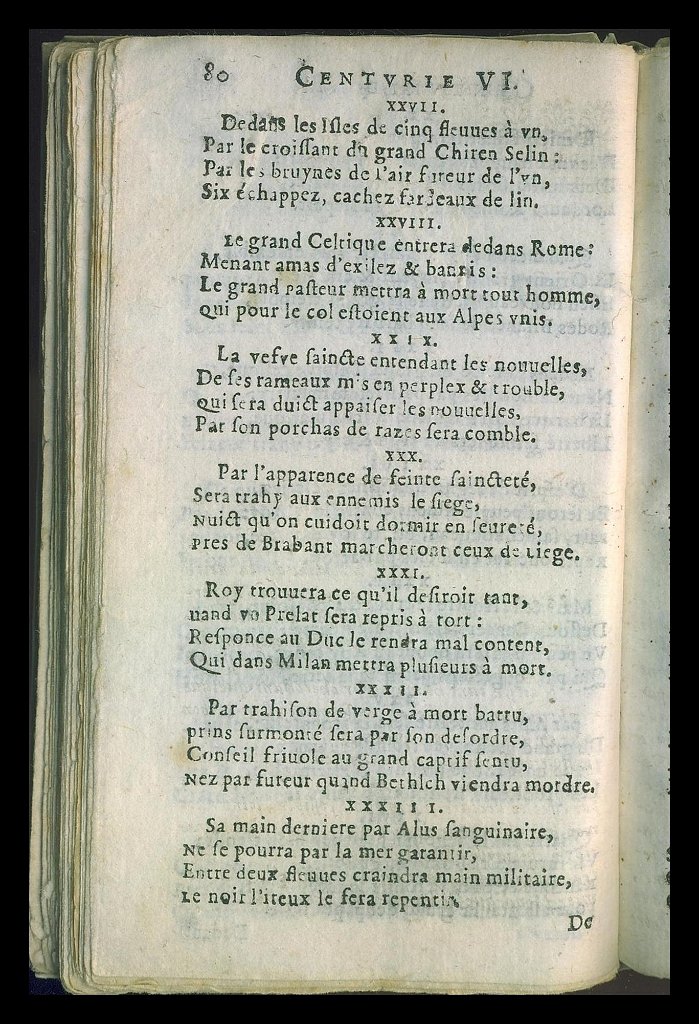 80 CENTVRIE VI.
XXVII.
Dedans les Isles de cinq fleuues à vn,
Par le croissant du grand Chiren Selin :
Par les bruynes de l'air fureur de l'vn,
Six échappez, cachez fardeaux de lin.
XXVIII.
Le grand Celtique entrera dedans Rome :
Menant amas d'exilez & bannis :
Le grand pasteur mettra à mort tout homme,
Qui pour le col estoient aux Alpes vnis.
XXIX.
La vefve saincte entendant les nouuelles,
De ses rameaux mis en perplex & trouble,
Qui sera duict appaiser les nouuelles,
Par son porchas de razes sera comble.
XXX.
Par l'apparence de feinte saincteté,
Sera trahy aux ennemis le siege,
Nuict qu'on cuidoit dormir en seureté,
Pres de Brabant marcheront ceux de Liege.
XXXI.
Roy trouuera ce qu'il desiroit tant,
uand vn Prelat sera repris à tort :
Responce au Duc le rendra mal content,
Qui dans Milan mettra plusieurs à mort.
XXXII.
Par trahison de verge à mort battu,
prins surmonté sera par son desordre,
Conseil friuole au grand captif sentu,
Nez par fureur quand Bethlch viendra mordre.
XXXIII.
Sa main derniere par Alus sanguinaire,
Ne se pourra par la mer garantir,
Entre deux fleuues craindra main militaire,
Le noir l'ireux le fera repentir
De